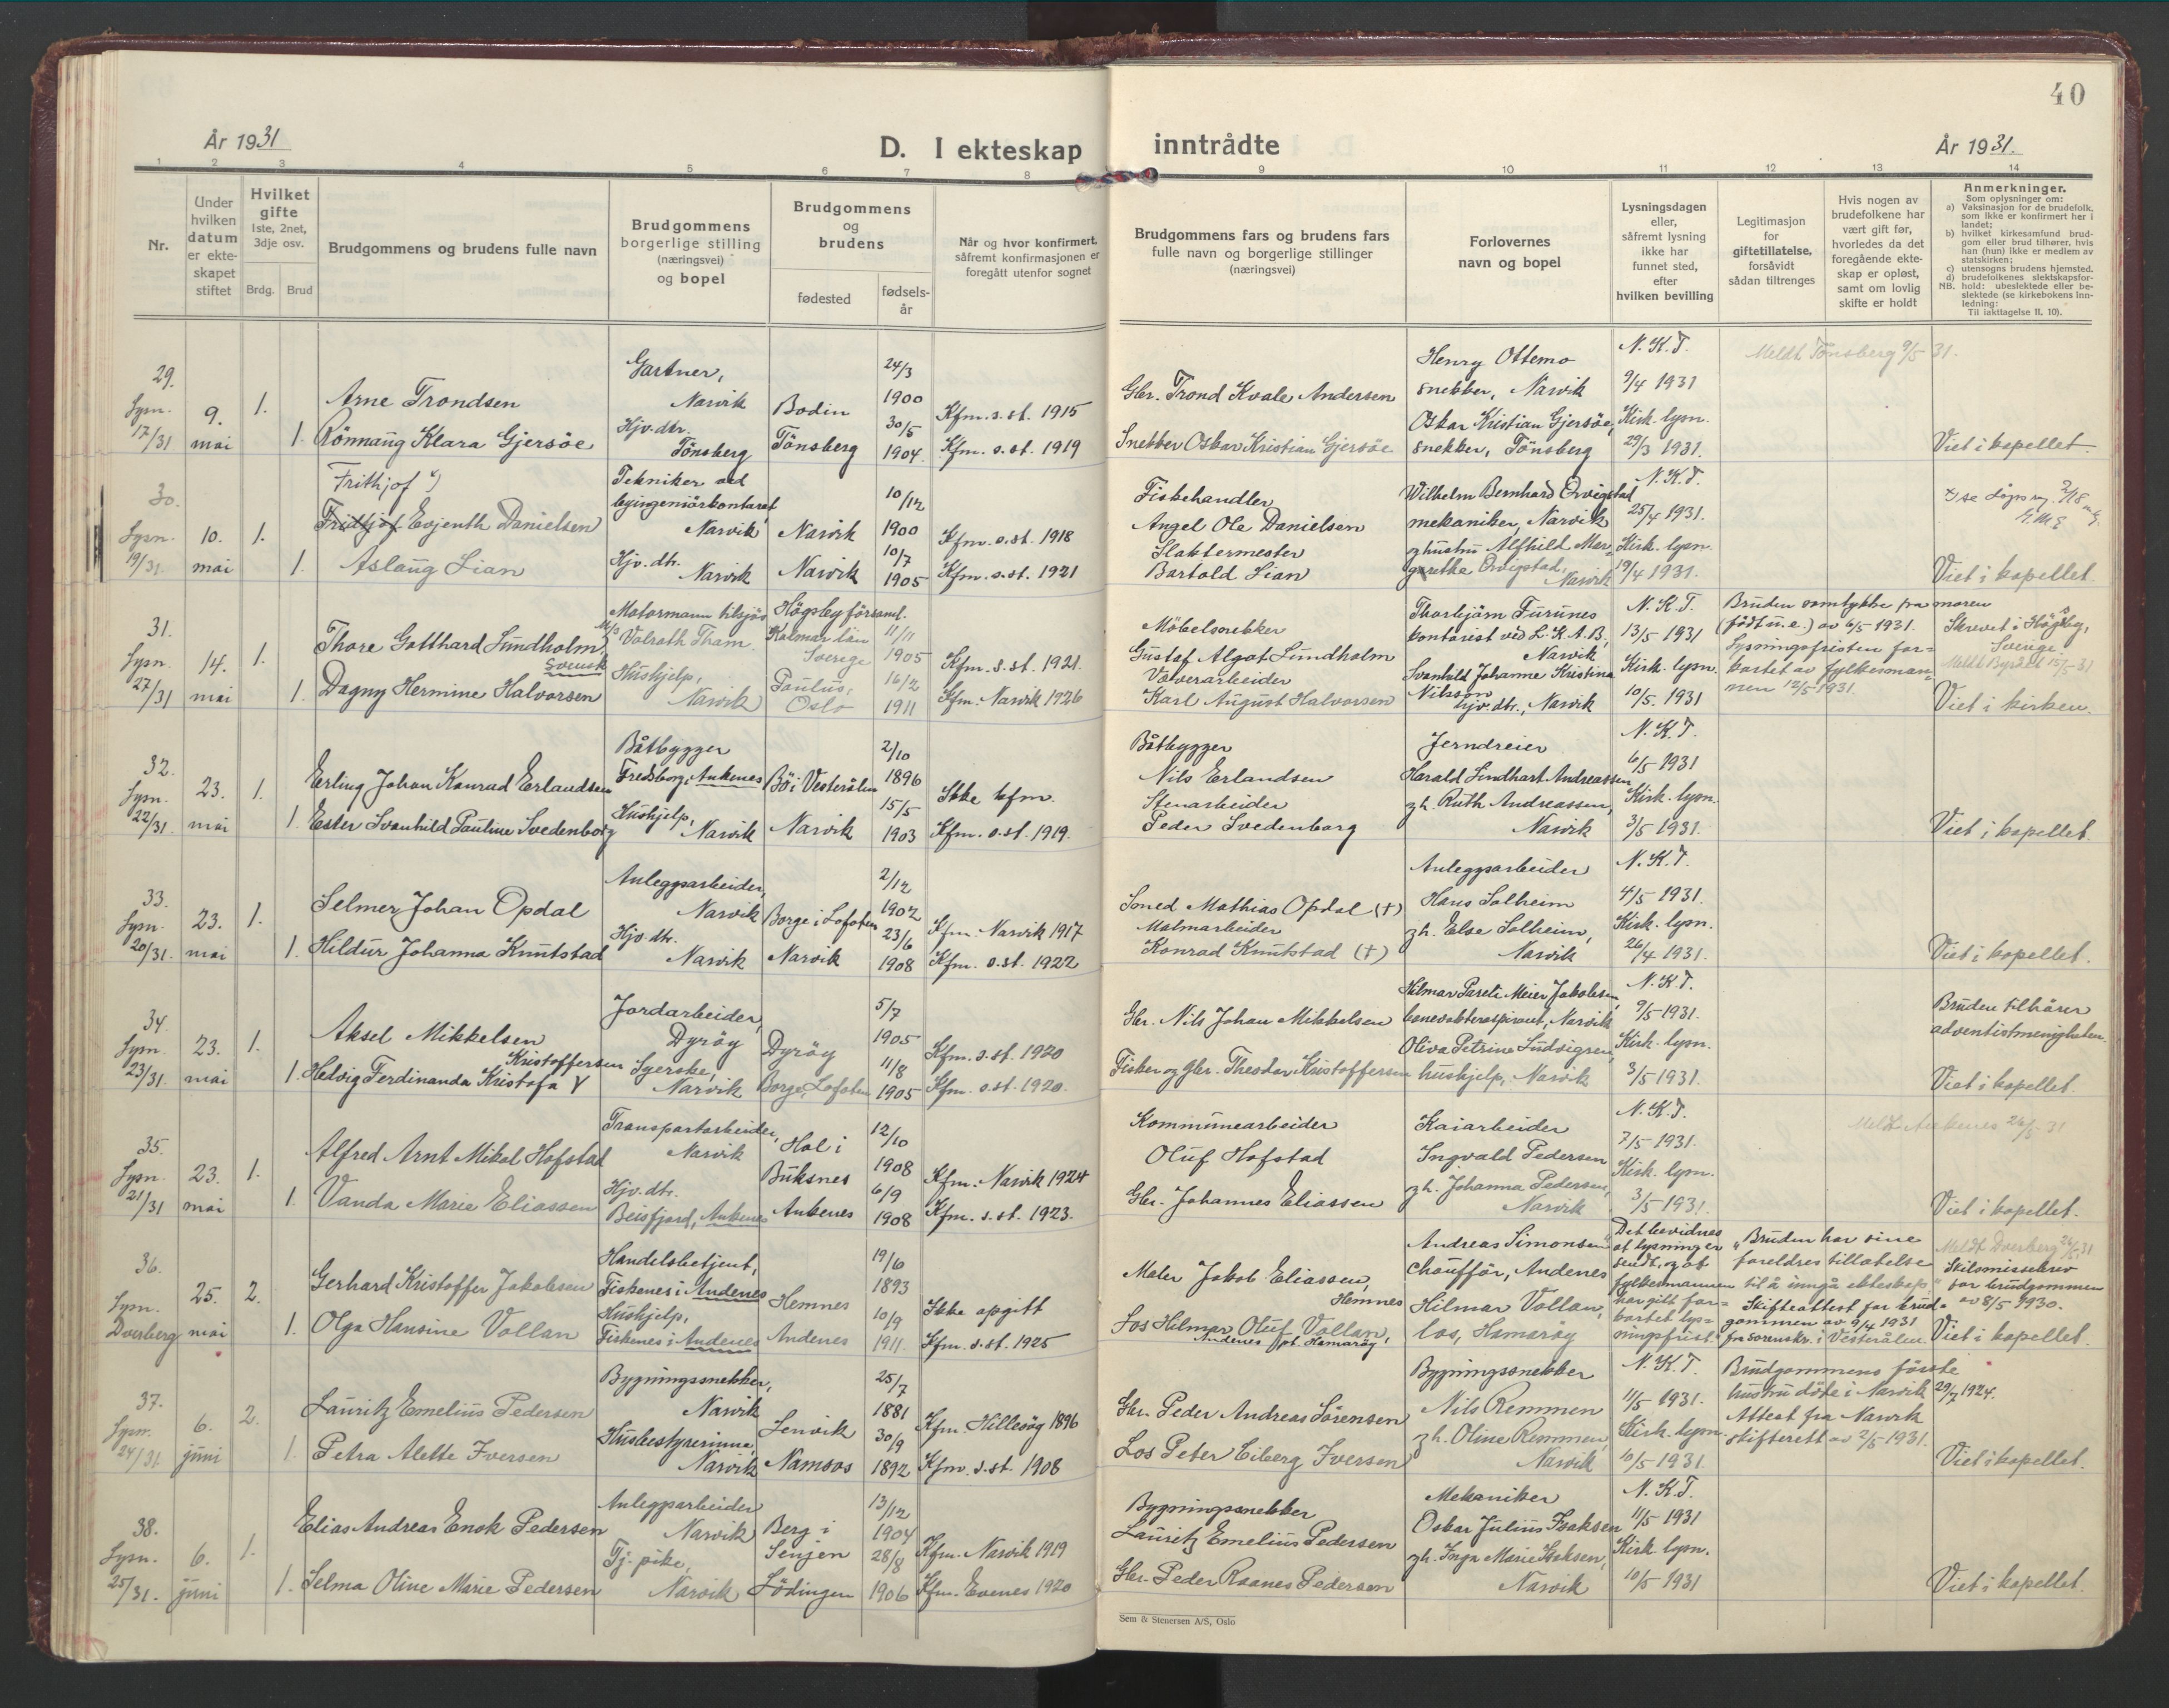 40
År 1931
D. I ekteskap inntrådte
År 1931.
1 2 3 4 5 6 7 8 9 10 11 12 13 14
Nr.
Under hvilken datum er ekteskapet stiftet
Hvilket gifte 1ste, 2net, 3dje osv.
Brdg. Brud
Brudgommens og brudens fulle navn
Brudgommens borgerlige stilling (næringsvei) og bopel
Brudgommens og brudens
fødested
fødselsår
Når og hvor konfirmert, såfremt konfirmasjonen er foregått utenfor sognet
Brudgommens fars og brudens fars fulle navn og borgerlige stillinger (næringsvei)
Forlovernes navn og bopel
Lysningsdagen eller, såfremt lysning ikke har funnet sted, efter hvilken bevilling
Legitimasjon for giftetillatelse, forsåvidt sådan tiltrenges
Hvis nogen av brudefolkene har vært gift før, hvorledes da det foregående ekteskap er opløst, samt om lovlig skifte er holdt
Anmerkninger.
Som oplysninger om:
a) Vaksinasjon for de brudefolk, som ikke er konfirmert her i landet;
b) hvilket kirkesamfund brudgom eller brud tilhører, hvis han (hun) ikke er medlem av statskirken;
c) utensogns brudens hjemsted.
d) brudefolkenes slektskapsforhold: ubeslektede eller beslektede (se kirkebokens Innledning:
NB.
Til iakttagelse II, 10).
29. Lysn. 17/31
9. mai
1.
Arne Trondsen
Gartner, Narvik
Bodin
24/3 1900
Kfm. s. st. 1915
Gbr. Trond Kvale Andersen
Henry Ottemo snekker, Narvik
N. K. T. 9/4 1931
Meldt Tønsberg 9/5 31.
1. Rönnaug Klara Gjersöe
Hjv. dtr. Tönsberg
Tönsberg
30/5 1904.
Kfm. s. st. 1919
Snekker Oskar Kristian Gjersöe
Oskar Kristian Gjersöe, snekker, Tönsberg
Kirk. lysn. 29/3 1931.
Viet i kapellet.
30. Lysn. 19/31
10. mai
1.
Frithjof
Fridtjof Evjenth Danielsen
Tekniker ved byingeniörkontoret Narvik
Narvik
10/12 1900
Kfm. s. st. 1918
Fiskehandler Angel Ole Danielsen
Wilhelm Bernhard Orvigstad mekaniker, Narvik
N. K. T. 25/4 1931.
1. Aslaug Lian
Hjv. dtr. Narvik
Narvik
10/7 1905
Kfm. s. st. 1921
Slaktermester Bartold Lian
g hustru Alfhild Margarethe Orvigstad, Narvik
Kirk. lysn. 19/4 1931.
Viet i kapellet.
31. Lysn. 27/31
14. mai
1.
Thore Gotthard Lundholm, Svensk
Motormann tilsjøs M/S Valrath Tham
Högsby församl. Kalmar län Sverige
11/11 1905
Kfm. s. st. 1921.
Möbelsnekker Gustaf Algot Lundholm
Thorbjørn Furunes kontorist ved L. K. A. B., Narvik
N. K. T. 13/5 1931
Bruden samtykke fra moren (född u. e.) av 6/5 1931.
Lysningsfristen forkortet av fylkesmannen 12/5 1931.
Skrevet i Högsby, Sverige
1. Dagny Hermine Halvorsen
Hushjelp, Narvik
Paulus, Oslo
16/2 1911
Kfm. Narvik 1926
Væverarbeider Karl August Halvorsen
Svanhild Johanne Kristina Nilsson hjv. dtr., Narvik
Kirk. lysn. 10/5 1931
Viet i kirken.
32. Lysn. 22/31.
23. mai
1.
Erling Johan Konrad Erlandsen
Båtbygger Fredsborg, Ankenes
Bö i Vesterålen
2/10 1896
Ikke kfm.
Båtbygger Nils Erlandsen
Jerndreier Harald Lindhart Andreassen
N. K. T. 6/5 1931
1. Ester Svanhild Pauline Svedenborg
Hushjelp, Narvik
Narvik
15/5 1903
Kfm. s. st. 1919.
Stenarbeider Peder Svedenborg
g h. Ruth Andreassen, Narvik
Kirk. lysn. 3/5 1931.
Viet i kapellet.
33. Lysn. 20/31.
23. mai
1.
Selmer Johan Opdal
Anleggsarbeider, Narvik
Borge i Lofoten
2/12 1902
Kfm. Narvik 1917
Smed Mathias Opdal (+)
Anleggsarbeider Hans Solheim
N. K. T. 4/5 1931.
1. Hildur Johanna Knutstad
Hjv. dtr. Narvik
Narvik
23/6 1908
Kfm. s. st. 1922
Malmarbeider Konrad Knutstad (+)
g h. Else Solheim, Narvik
Kirk. lysn. 26/4 1931.
Viet i kapellet.
34. Lysn. 23/31.
23. mai
1.
Aksel Mikkelsen
Jordarbeider, Dyröy
Dyröy
5/7 1905
Kfm. s. st. 1920
Gbr. Nils Johan Mikkelsen
Hilmar Pareli Meier Jakobsen, banevokteraspirant, Narvik
N. K. T. 9/5 1931.
Bruden tilhører adventistmenigheten.
1. Hedvig Ferdinanda Kristofa Kristoffersen
Syerske, Narvik
Borge, Lofoten
11/8 1905
Kfm. s. st. 1920.
Fisker og gbr. Theodor Kristoffersen
Oliva Petrine Ludvigsen, hushjelp, Narvik
Kirk. lysn. 3/5 1931.
Viet i kapellet.
35. Lysn. 21/31
23. mai
1.
Alfred Arnt Mikal Hofstad
Transportarbeider, Narvik
Hol i Buksnes
12/10 1908
Kfm. Narvik 1924
Kommunearbeider Oluf Hofstad
Kaiarbeider Ingvald Pedersen
N. K. T. 7/5 1931.
Meldt Ankenes 26/5 31
1. Vanda Marie Eliassen
Hjv. dtr. Beisfjord, Ankenes
Ankenes
6/9 1908
Kfm. s. st. 1923.
Gbr. Johannes Eliassen
g h. Johanna Pedersen, Narvik
Kirk. lysn. 3/5 1931.
Viet i kapellet.
36. Lysn. Dverberg
25. mai
2.
Gerhard Kristoffer Jakobsen
Handelsbetjent, Fiskenes i Andenes
Hemnes
19/6 1893
Ikke opgitt
Maler Jakob Eliassen, Hemnes
Andreas Simonsen chauffør, Andenes
"Det bevidnes at lysning er sendt, og at fylkesmannen har gitt forkortet lysningsfrist."
"Bruden har sine foreldres tillatelse til å inngå ekteskap."
Skifteattest for brudgommen av 9/4 1931 fra sorenskr. i Vesterålen
Meldt Dverberg 26/5 31
Skilsmissebrev for brudgommen av 8/5 1930.
1. Olga Hansine Vollan
Hushjelp, Fiskenes i Andenes
Andenes
10/9 1911.
Kfm. s. st. 1925
Los Hilmar Oluf Vollan, Andenes pt. Hamarøy,
Hilmar Vollan, los, Hamarøy
Viet i kapellet.
37. Lysn. 24/31.
6. juni
2.
Lauritz Emelius Pedersen
Bygningssnekker, Narvik
Lenvik
25/7 1881
Kfm. Hillesöy 1896
Gbr. Peder Andreas Sörensen
Bygningssnekker Nils Remmen
N. K. T. 11/5 1931.
Brudgommens første hustru døde i Narvik 29/7 1924.
Attest fra Narvik skifterett av 2/5 1931.
1. Petra Alette Iversen
Husbestyrerinne, Narvik
Namsos
30/9 1892
Kfm. s. st. 1908
Los Peter Eiberg Iversen
g h. Oline Remmen, Narvik
Kirk. lysn. 10/5 1931.
Viet i kapellet.
38. Lysn. 25/31.
6. juni
1.
Elias Andreas Enok Pedersen
Anleggsarbeider Narvik
Berg i Senjen
13/12 1904
Kfm. Narvik 1919
Bygningssnekker Lauritz Emelius Pedersen
Mekaniker Oskar Julius Isaksen
N. K. T. 11/5 1931
1. Selma Oline Marie Pedersen
Tj. pike, Narvik
Lödingen
28/8 1906
Kfm. Evenes 1920
Gbr. Peder Raanes Pedersen
g h. Inga Marie Isaksen, Narvik
Kirk. lysn. 10/5 1931
Viet i kapellet.
Sem & Stenersen A/S, Oslo